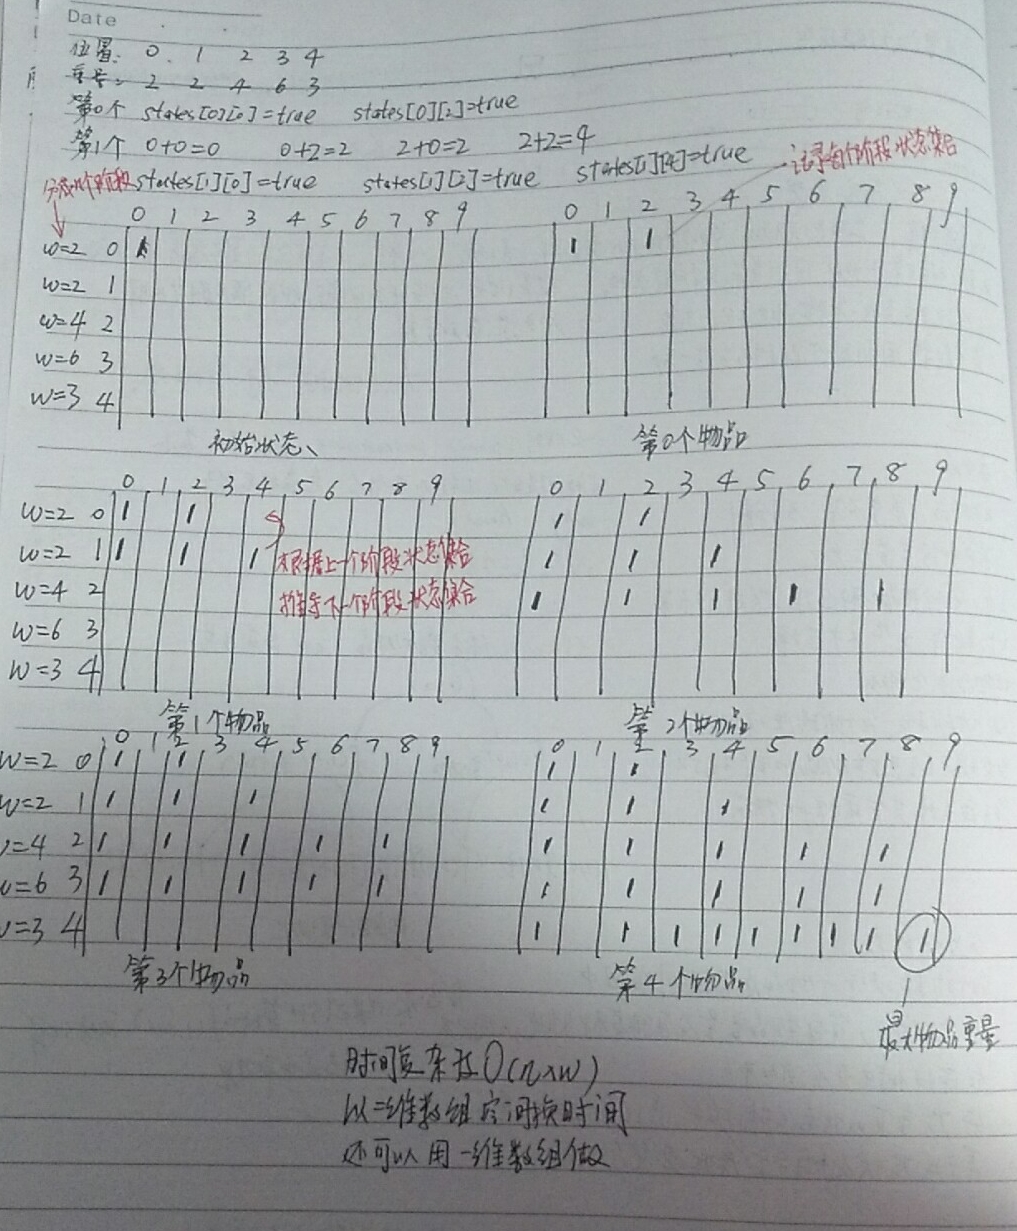 Date
位置: 0 1 2 3 4
2 2 4 6 3
第0个 states[0][0]=true states[0][2]=true
第1个 0+0=0 0+2=2 2+0=2 2+2=4
states[1][0]=true states[1][2]=true states[1][4]=true
记录每个阶段状态集合
0 1 2 3 4 5 6 7 8 9
w=2 0 1
w=2 1
w=4 2
w=6 3
w=3 4
初始状态、
0 1 2 3 4 5 6 7 8 9
1 1
第0个物品
0 1 2 3 4 5 6 7 8 9
w=2 0 1 1
w=2 1 1 1 1
w=4 2
w=6 3
w=3 4
根据上一个阶段状态集合
推导下一个阶段状态集合
第1个物品
0 1 2 3 4 5 6 7 8 9
1 1
1 1 1
1 1 1 1 1
第2个物品
0 1 2 3 4 5 6 7 8 9
w=2 0 1 1
w=2 1 1 1 1
=4 2 1 1 1 1 1
=6 3 1 1 1 1 1
=3 4
第3个物品
0 1 2 3 4 5 6 7 8 9
1 1
1 1 1
1 1 1 1 1
1 1 1 1 1
1 1 1 1 1 1 1 1 1
第4个物品
最大物品重量
时间复杂度O(n×w)
以二维数组空间换时间
还可以用一维数组做